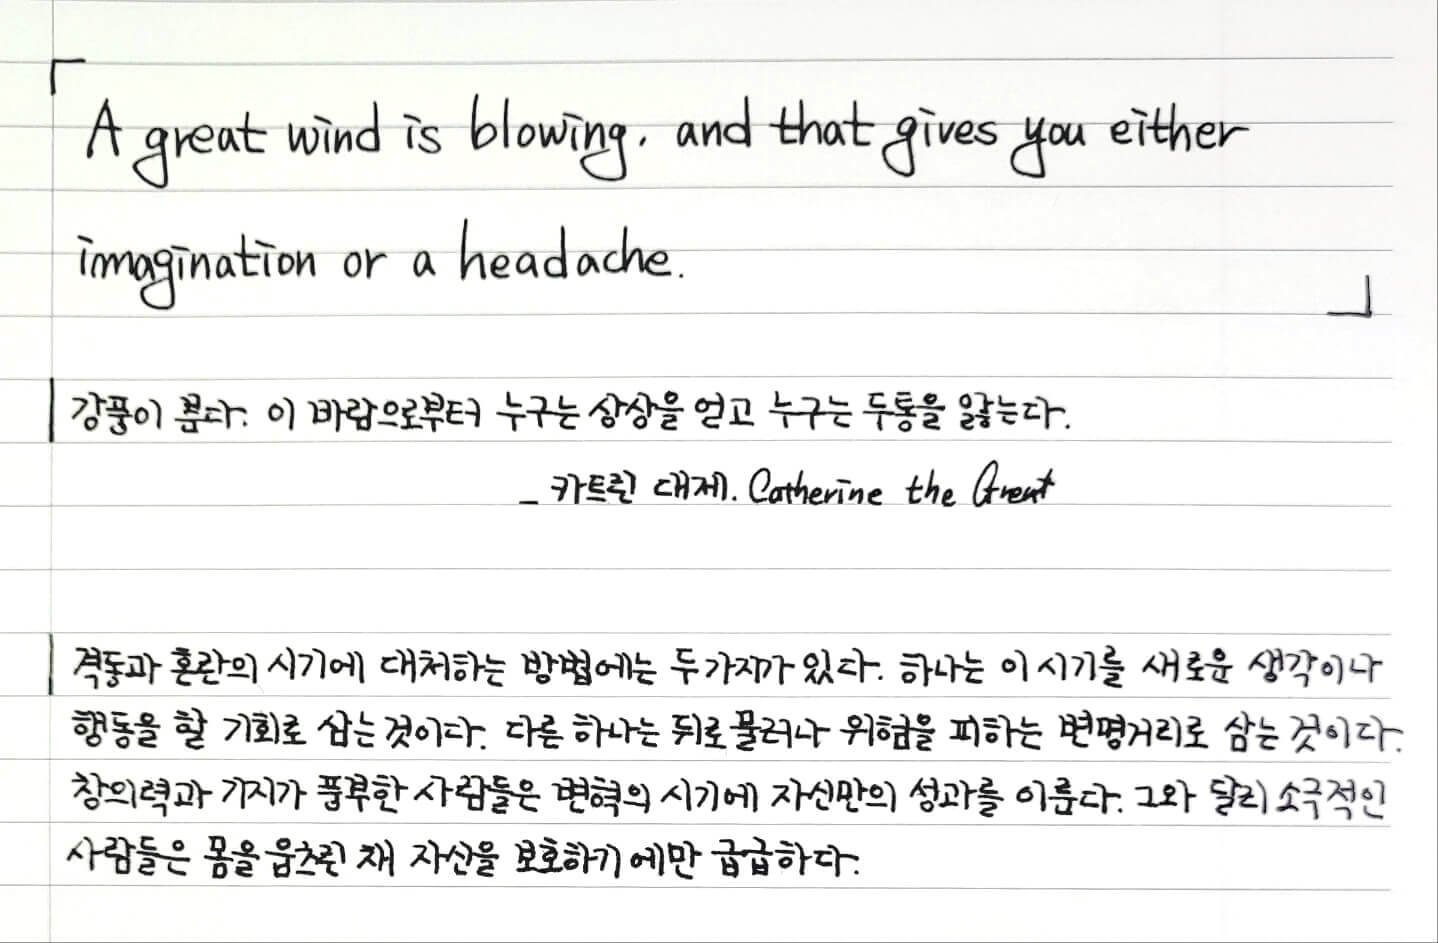 「A great wind is blowing, and that gives you either
imagination or a headache.」
강풍이 분다. 이 바람으로부터 누구는 상상을 얻고 누구는 두통을 앓는다.
_ 카트린 대제. Catherine the Great
격동과 혼란의 시기에 대처하는 방법에는 두가지가 있다. 하나는 이 시기를 새로운 생각이나
행동을 할 기회로 삼는 것이다. 다른 하나는 뒤로 물러나 위험을 피하는 변명거리로 삼는 것이다.
창의력과 기지가 풍부한 사람들은 변혁의 시기에 자신만의 성과를 이룬다. 그와 달리 소극적인
사람들은 몸을 움츠린 채 자산을 보호하기에만 급급하다.